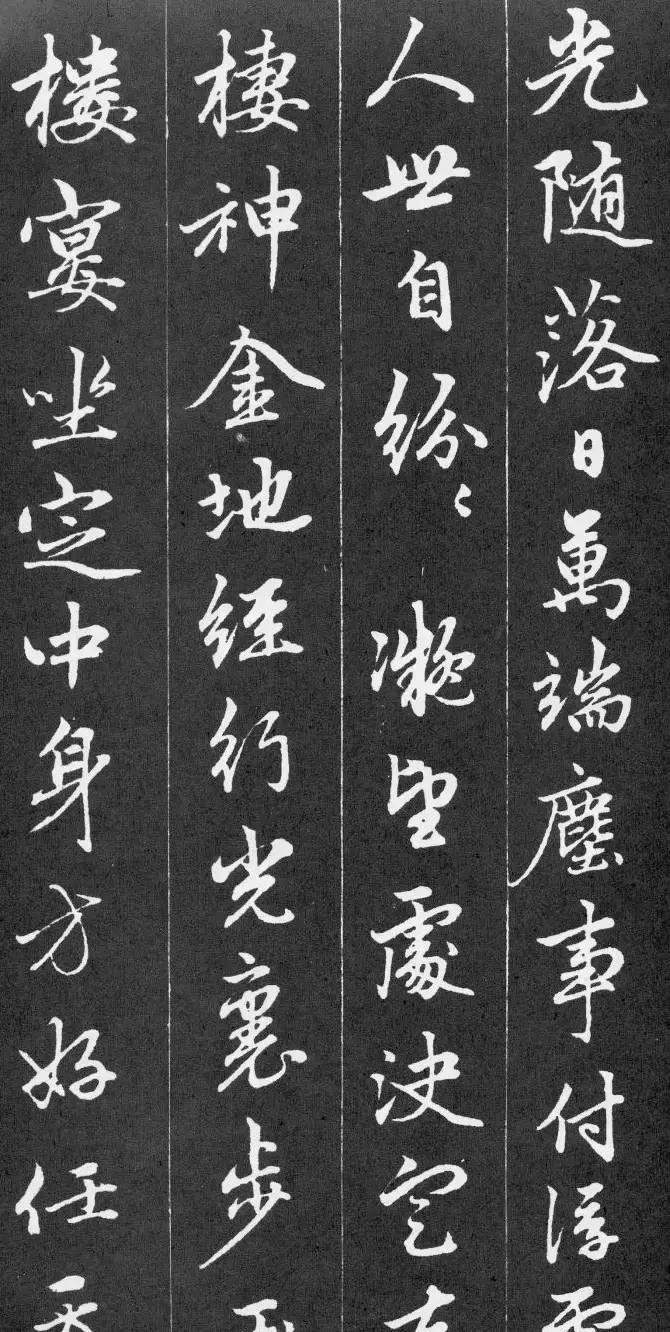 光随落日萬端塵事付浮
人世自紛〻凝望處決定
棲神金地經行光裏步
樓宴坐定中身方好任